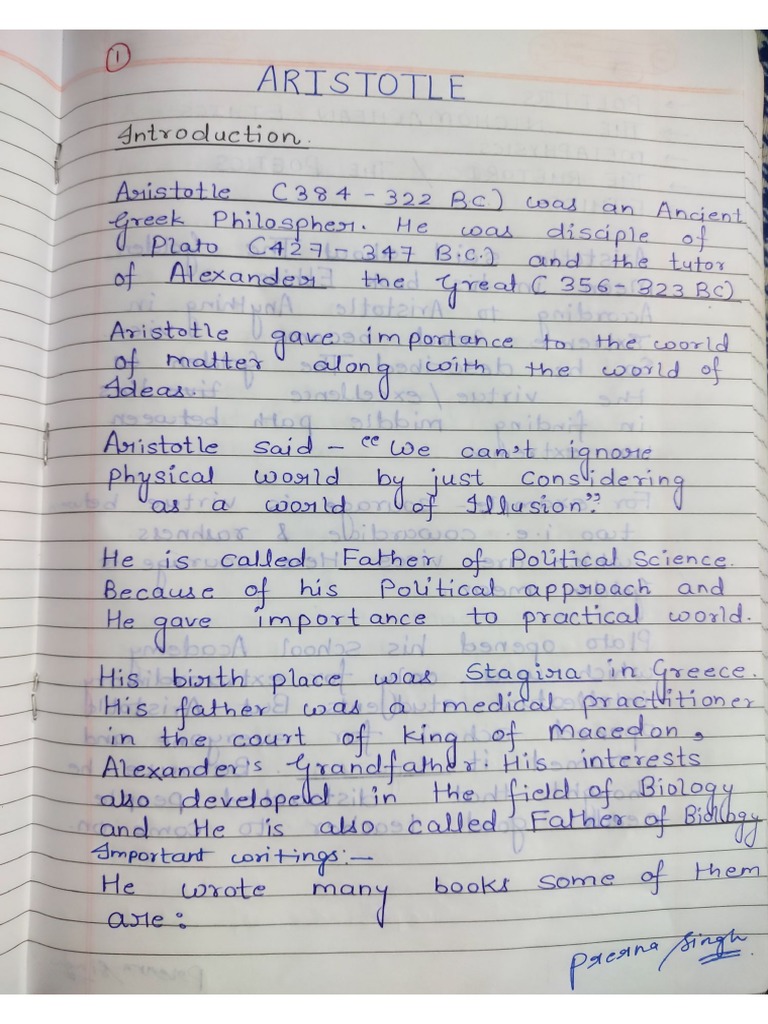 1
ARISTOTLE
Introduction.
Aristotle (384 - 322 BC) was an Ancient
Greek Philospher. He was disciple of
Plato (427 - 347 B.C.) and the tutor
of Alexander the Great ( 356 - 323 BC)
Aristotle gave importance to the world
of matter along with the world of
Ideas.
Aristotle said - "We can't ignore
physical world by just considering
as a world of Illusion".
He is called Father of Political Science.
Because of his Political approach and
He gave importance to practical world.
His birth place was Stagira in Greece.
His father was a medical practitioner
in the court of king of Macedon,
Alexander's Grandfather. His interests
also developed in the field of Biology
and He is also called Father of Biology
Important writings:-
He wrote many books some of them
are:
Prerna Singh